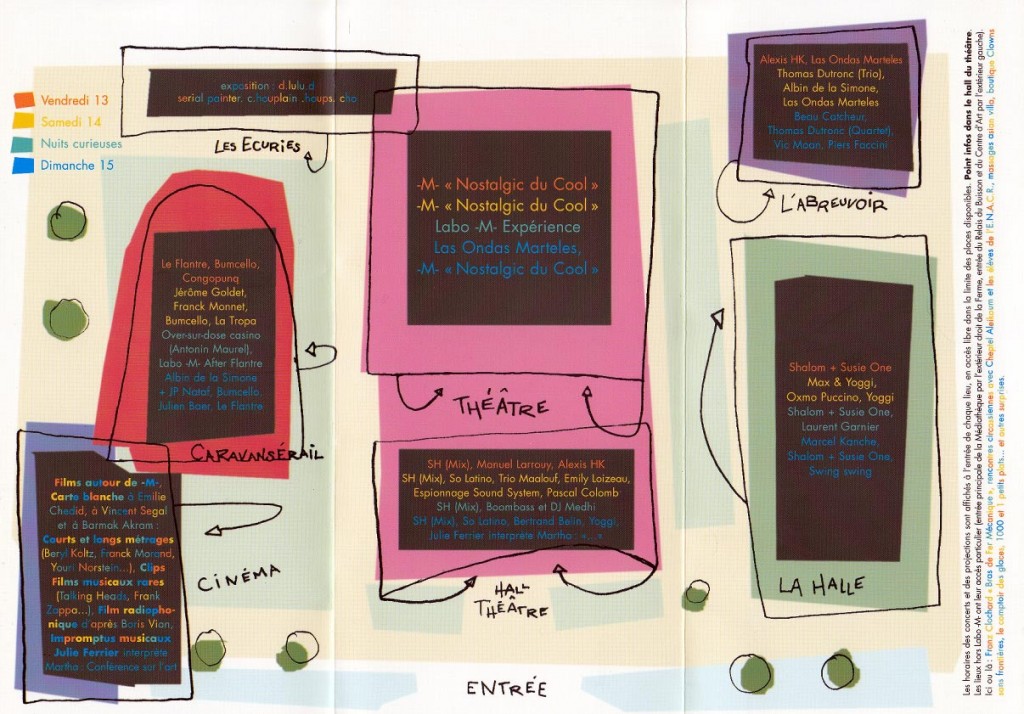 Vendredi 13
Samedi 14
Nuits curieuses
Dimanche 15
exposition : d.lulu.d
serial painter, c.houplain .houps, cho
LES ECURIES
Alexis HK, Las Ondas Marteles
Thomas Dutronc (Trio),
Albin de la Simone,
Las Ondas Marteles
Beau Catcheur,
Thomas Dutronc (Quartet),
Vic Moan, Piers Faccini
L'ABREUVOIR
-M- « Nostalgic du Cool »
-M- « Nostalgic du Cool »
Labo -M- Expérience
Las Ondas Marteles,
-M- « Nostalgic du Cool »
THÉÂTRE
Le Flantre, Bumcello,
Congopunq
Jérôme Goldet,
Franck Monnet,
Bumcello, La Tropa
Over-sur-dose casino
(Antonin Maurel),
Labo -M- After Flantre
Albin de la Simone
+ JP Nataf, Bumcello.
Julien Baer, Le Flantre
CARAVANSÉRAIL
Shalom + Susie One
Max & Yoggi,
Oxmo Puccino, Yoggi
Shalom + Susie One,
Laurent Garnier
Marcel Kanche,
Shalom + Susie One,
Swing swing
LA HALLE
SH (Mix), Manuel Larrouy, Alexis HK
SH (Mix), So Latino, Trio Maalouf, Emily Loizeau,
Espionnage Sound System, Pascal Colomb
SH (Mix), Boombass et DJ Medhi
SH (Mix), So Latino, Bertrand Belin, Yoggi,
Julie Ferrier interprète Martha : «...»
HALL
THÉÂTRE
Films autour de -M-,
Carte blanche à Emilie
Chedid, à Vincent Segal
et à Barmak Akram :
Courts et longs métrages
(Beryl Koltz, Franck Morand,
Youri Norstein...), Clips
Films musicaux rares
(Talking Heads, Frank
Zappa...), Film radiopho-
nique d'après Boris Vian,
Impromptus musicaux
Julie Ferrier interprète
Martha : Conférence sur l'art
CINÉMA
ENTRÉE
Les horaires des concerts et des projections sont affichés à l'entrée de chaque lieu, en accès libre dans la limite des places disponibles. Point infos dans le hall du théâtre.
Les lieux hors Labo -M- ont leur accès particulier (entrée principale de la Médiathèque par l'extérieur droit de la Ferme, entrée du Relais du Buisson et du Centre d'Art par l'extérieur gauche).
Ici ou là : Franz Clochard « Bras de Fer Mécanique », rencontres circassiennes avec Cheptel Aleïkoum et les élèves de l'E.N.A.C.R., massages asian villa, boutique Clowns
sans frontières, le comptoir des glaces, 1000 et 1 petits plats... et autres surprises.